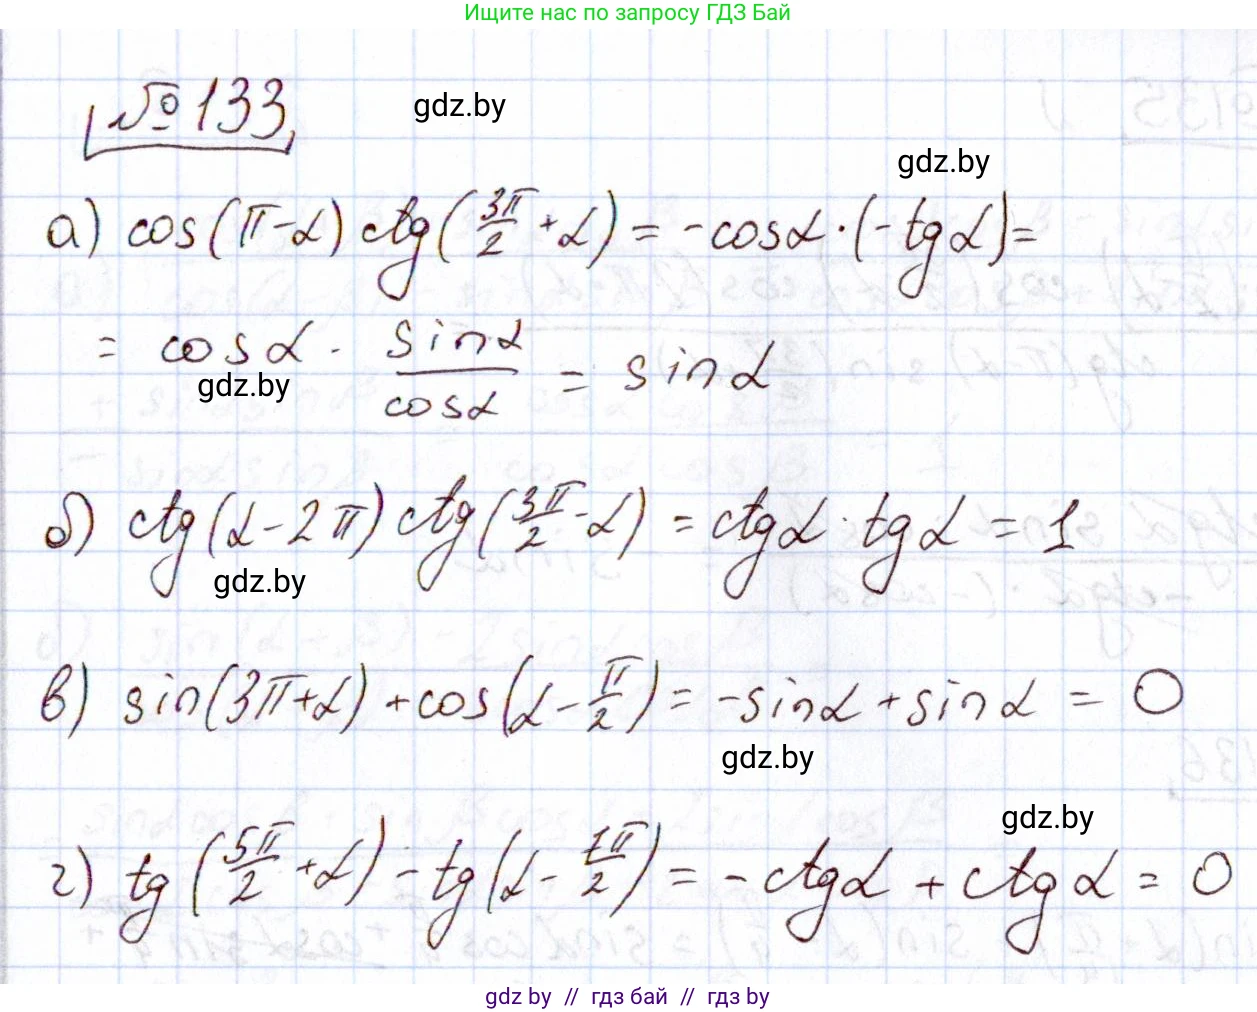 Ищите нас по запросу ГДЗ Бай
№133
gdz.by
gdz.by
а) cos(π-α) ctg(3π/2 +α) = -cosα·(-tgα)=
= cosα · sinα/cosα = sinα
gdz.by
б) ctg(α-2π) ctg(3π/2 -α) = ctgα·tgα = 1
gdz.by
в) sin(3π+α) +cos(α-π/2) = -sinα+sinα = 0
gdz.by
gdz.by
г) tg(5π/2 +α) - tg(α- 7π/2) = -ctgα + ctgα = 0
gdz by // гдз бай // гдз by